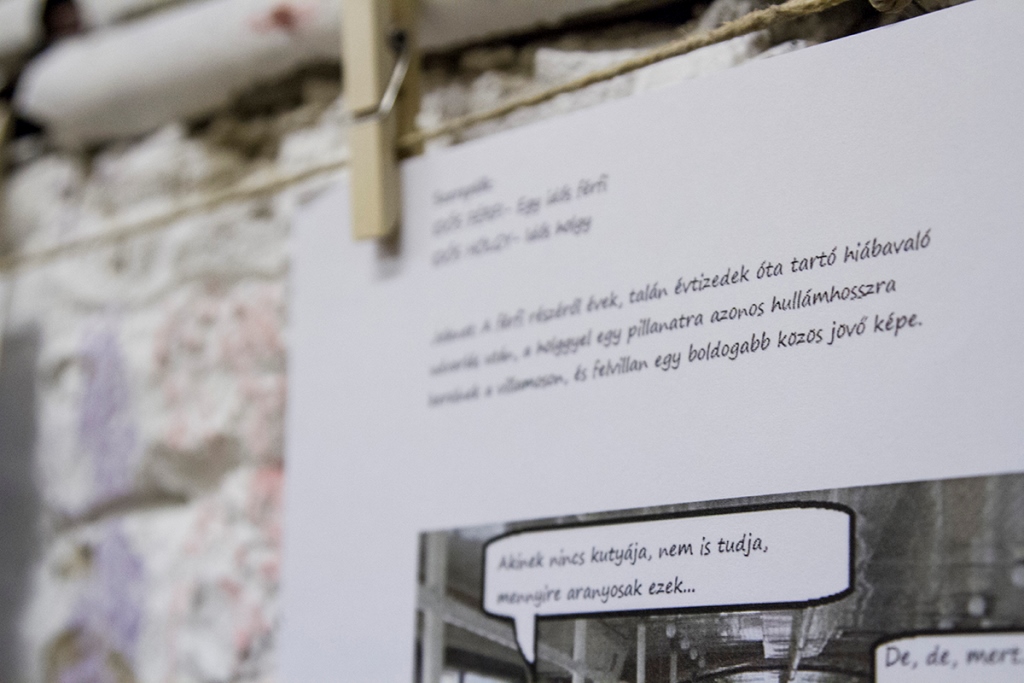 Szereplők:
IDŐS FÉRFI- Egy idős férfi
IDŐS HÖLGY- Idős hölgy
Jelenet: A férfi részéről évek, talán évtizedek óta tartó hiábavaló
udvarlás után, a hölggyel egy pillanatra azonos hullámhosszra
kerülnek a villamoson, és felvillan egy boldogabb közös jövő képe.
Akinek nincs kutyája, nem is tudja,
mennyire aranyosak ezek...
De, de, merz